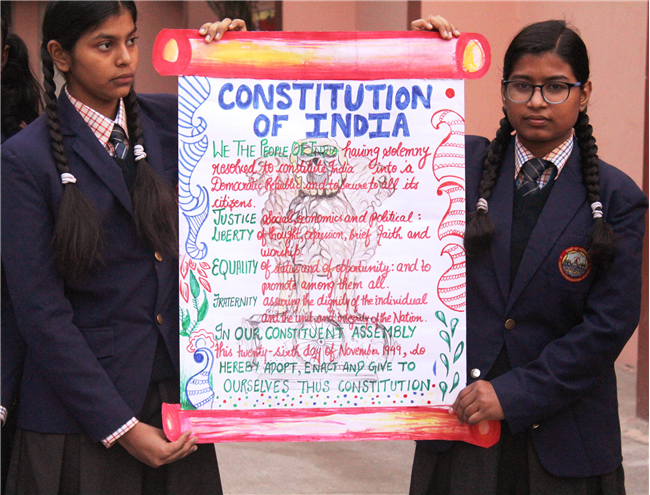 CONSTITUTION
OF INDIA
WE THE PEOPLE OF INDIA having solemny
resolved to constitute into a
Democratic Republic and to secure to all its
citizens.
JUSTICE social, economics and political :
LIBERTY of thought, expression, brief faith and
worship.
EQUALITY of status and of opportunity: and to
promote among them all.
FRATERNITY assuring the dignity of the individual
and the unit and integrity of the Nation.
IN OUR CONSTITUENT ASSEMBLY
this twenty-sixth day of November 1949, do
HEREBY ADOPT, ENACT AND GIVE TO
OURSELVES THUS CONSTITUTION.